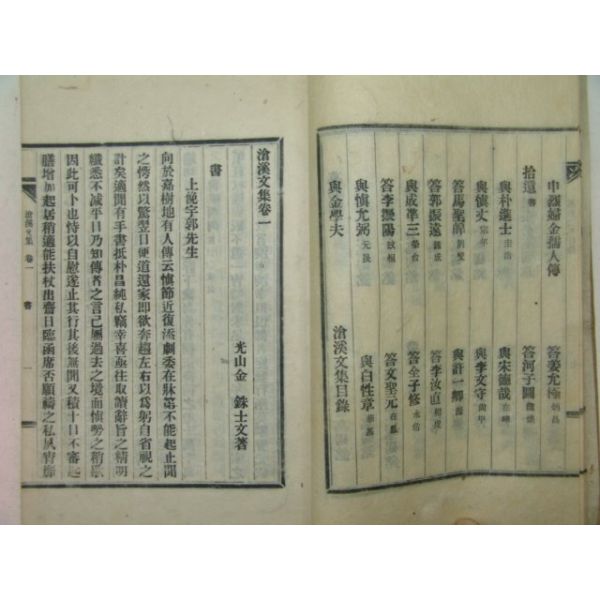 申烈婦金孺人傳
拾遺 書
答姜允極 炳昌
與朴進士
答河子圖
與慎丈 宗年
與宋德哉 在
答馬聖
與李文守 尚甲
答郭振遠 鍾成
與許一卿
與成準三 榮台
答李汝直
答李
答金子修 永台
與慎允弼 元晟
答文聖元 在
與金學夫
與白性章
滄溪文集目錄
滄溪文集卷一
光山金 銖士文著
書
上俛宇郭先生
向於嘉樹地有人傳云慎節近復添劇委在牀第不能起止聞
之愕然以驚翌日便道還家即欲奔趨左右以為躬自省視之
計矣適聞有手書抵朴昌純私竊幸喜亟往取讀辭旨之精明
纖悉不減平日乃知傳者之言已屬過去之境而慎勞之稍
因此可卜也恃以自慰遂止其行其後無聞又積十日不審起
膳增加起居稍適能扶杖出齋日臨函席否願禱之私
滄溪文集 卷一 書